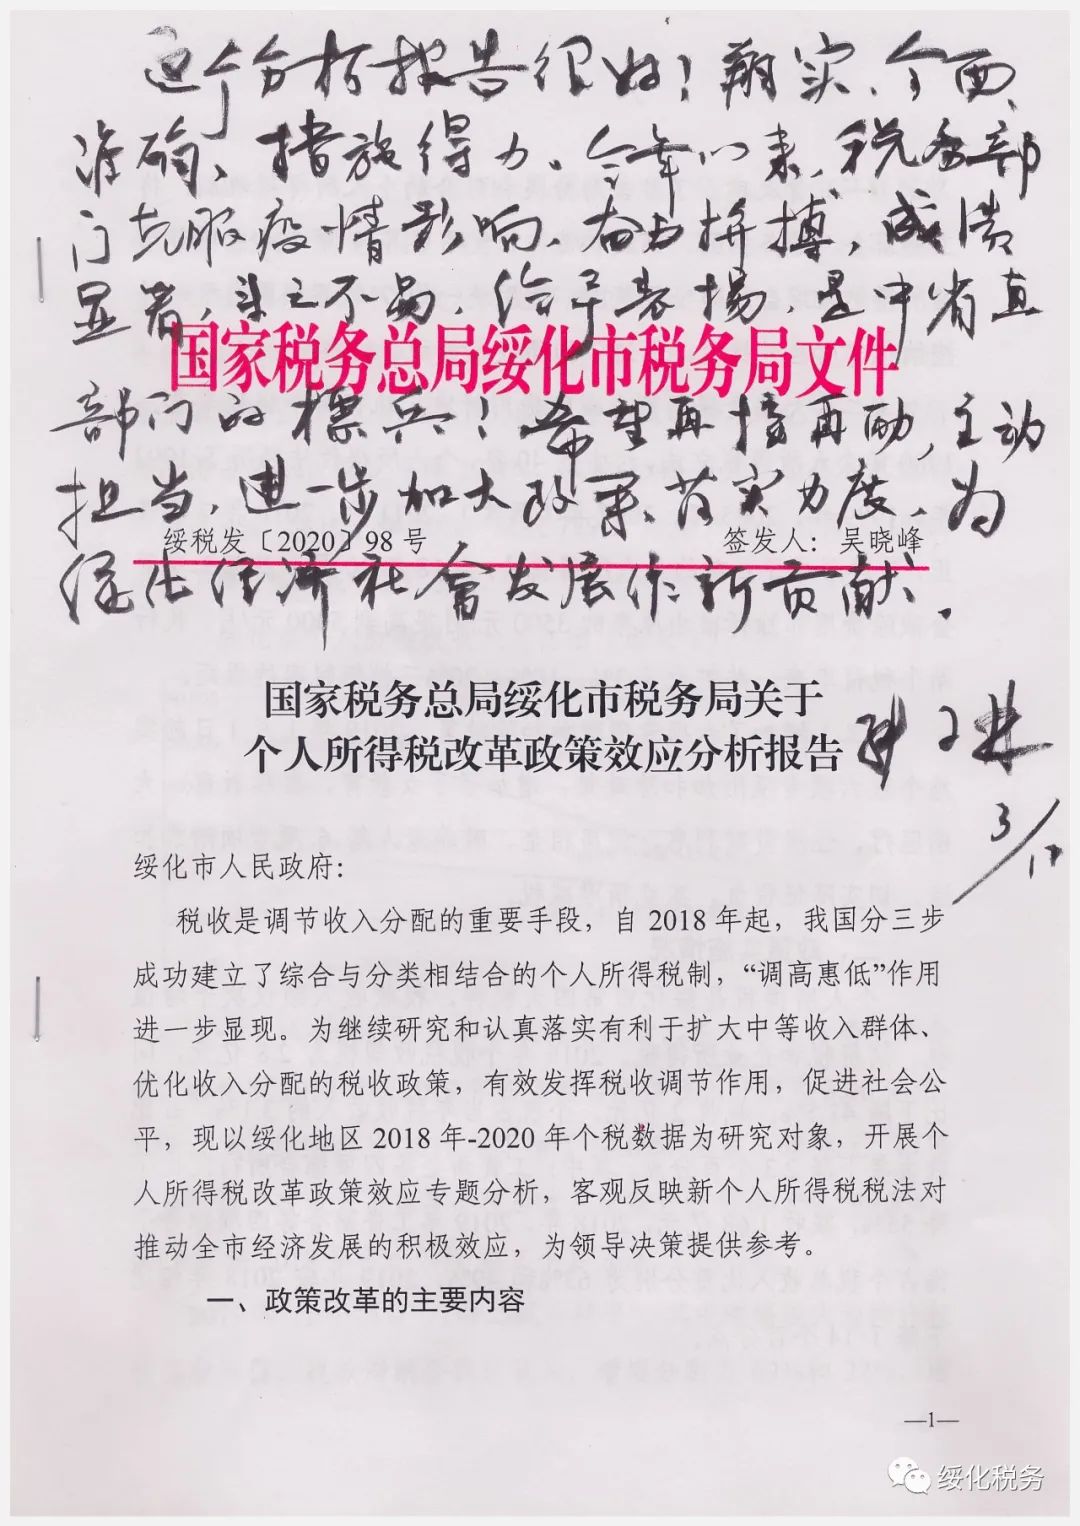 这个分析报告很好！翔实、全面、
准确，措施得力。今年以来，税务部
门克服疫情影响，奋力拼搏，成绩
显著，来之不易，给予表揚，是中省直
国家税务总局绥化市税务局文件
部门的標兵！希望再接再励，主动
担当，进一步加大政策落实力度，为
绥税发〔2020〕98 号
签发人：吴晓峰
绥化经济社會发展作新贡献。
国家税务总局绥化市税务局关于
个人所得税改革政策效应分析报告
绥化市人民政府：
税收是调节收入分配的重要手段，自 2018 年起，我国分三步
成功建立了综合与分类相结合的个人所得税制，“调高惠低”作用
进一步显现。为继续研究和认真落实有利于扩大中等收入群体、
优化收入分配的税收政策，有效发挥税收调节作用，促进社会公
平，现以绥化地区 2018 年-2020 年个税数据为研究对象，开展个
人所得税改革政策效应专题分析，客观反映新个人所得税税法对
推动全市经济发展的积极效应，为领导决策提供参考。
一、政策改革的主要内容
—1—
绥化税务